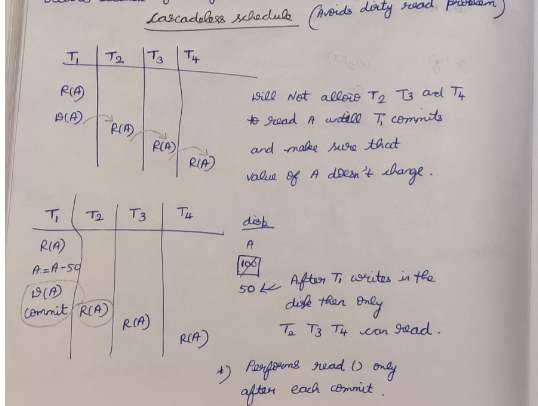 Cascadeless schedule (Avoids dirty read problem)
T1 T2 T3 T4
R(A)
W(A)
R(A)
R(A)
R(A)
Will Not allow T2 T3 and T4
to read A untill T1 commits
and make sure that
value of A doesn't change.
T1 T2 T3 T4
R(A)
A=A-50
W(A)
commit R(A)
R(A)
R(A)
disk
A
100
50
After T1 writes in the
disk then only
T2 T3 T4 can read.
*) Performs read () only
after each commit.